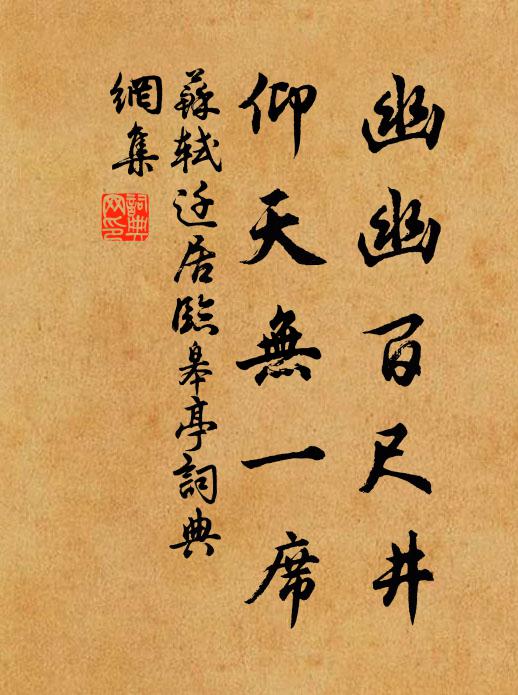 幽幽百尺井
仰天無一席
蘇軾迁居臨皋亭詞典
網集
詞典
网印